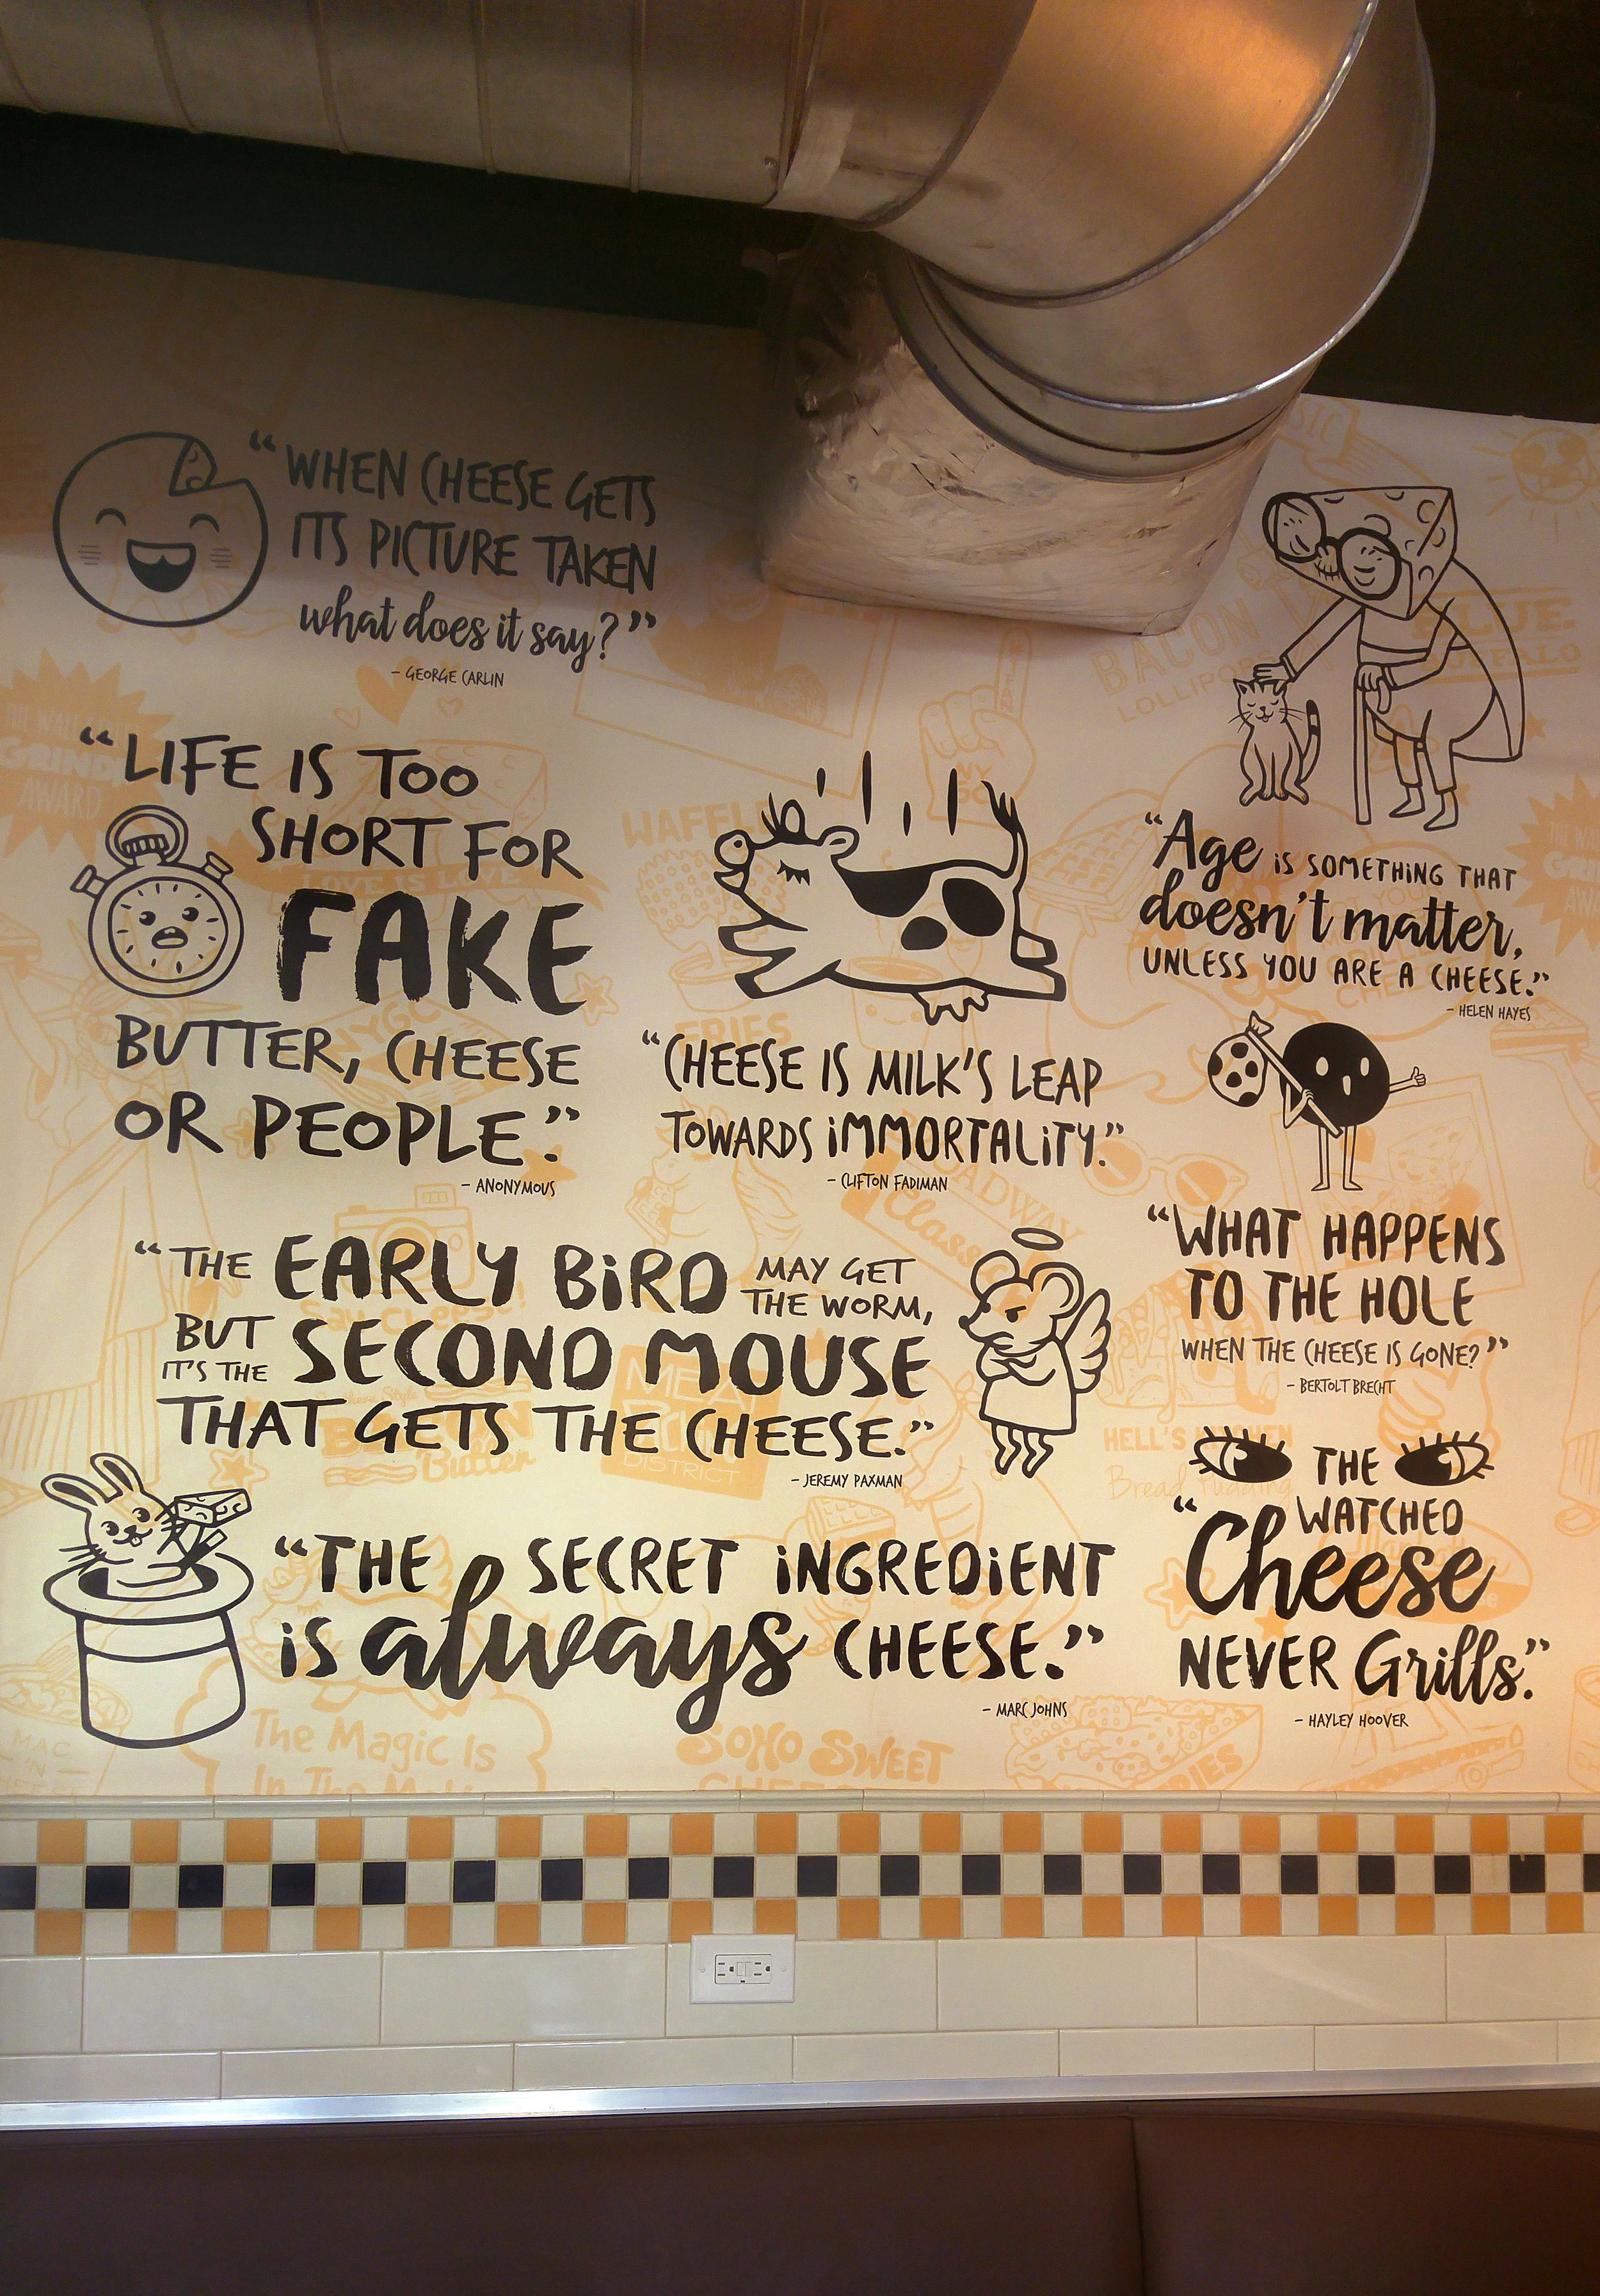 “WHEN CHEESE GETS
ITS PICTURE TAKEN
what does it say?”
- GEORGE CARLIN
“LIFE IS TOO
SHORT FOR
FAKE
BUTTER, CHEESE
OR PEOPLE.”
- ANONYMOUS
“CHEESE IS MILK’S LEAP
TOWARDS iMMORTALiTY.”
- CLIFTON FADIMAN
“Age iS SOMETHiNG THAT
doesn’t matter,
UNLESS YOU ARE A CHEESE.”
- HELEN HAYES
“WHAT HAPPENS
TO THE HOLE
WHEN THE CHEESE IS GONE?”
- BERTOLT BRECHT
“THE EARLY BiRD MAY GET
THE WORM,
BUT
IT’S THE SECOND MOUSE
THAT GETS THE CHEESE.”
- JEREMY PAXMAN
“THE SECRET iNGREDiENT
iS always CHEESE.”
- MARC JOHNS
“THE
WATCHED
Cheese
NEVER Grills.”
- HAYLEY HOOVER
BACON
WAFFLE
FRIES
AWARD
DISTRICT
Butter
The Magic Is
SOHO SWEET
MAC